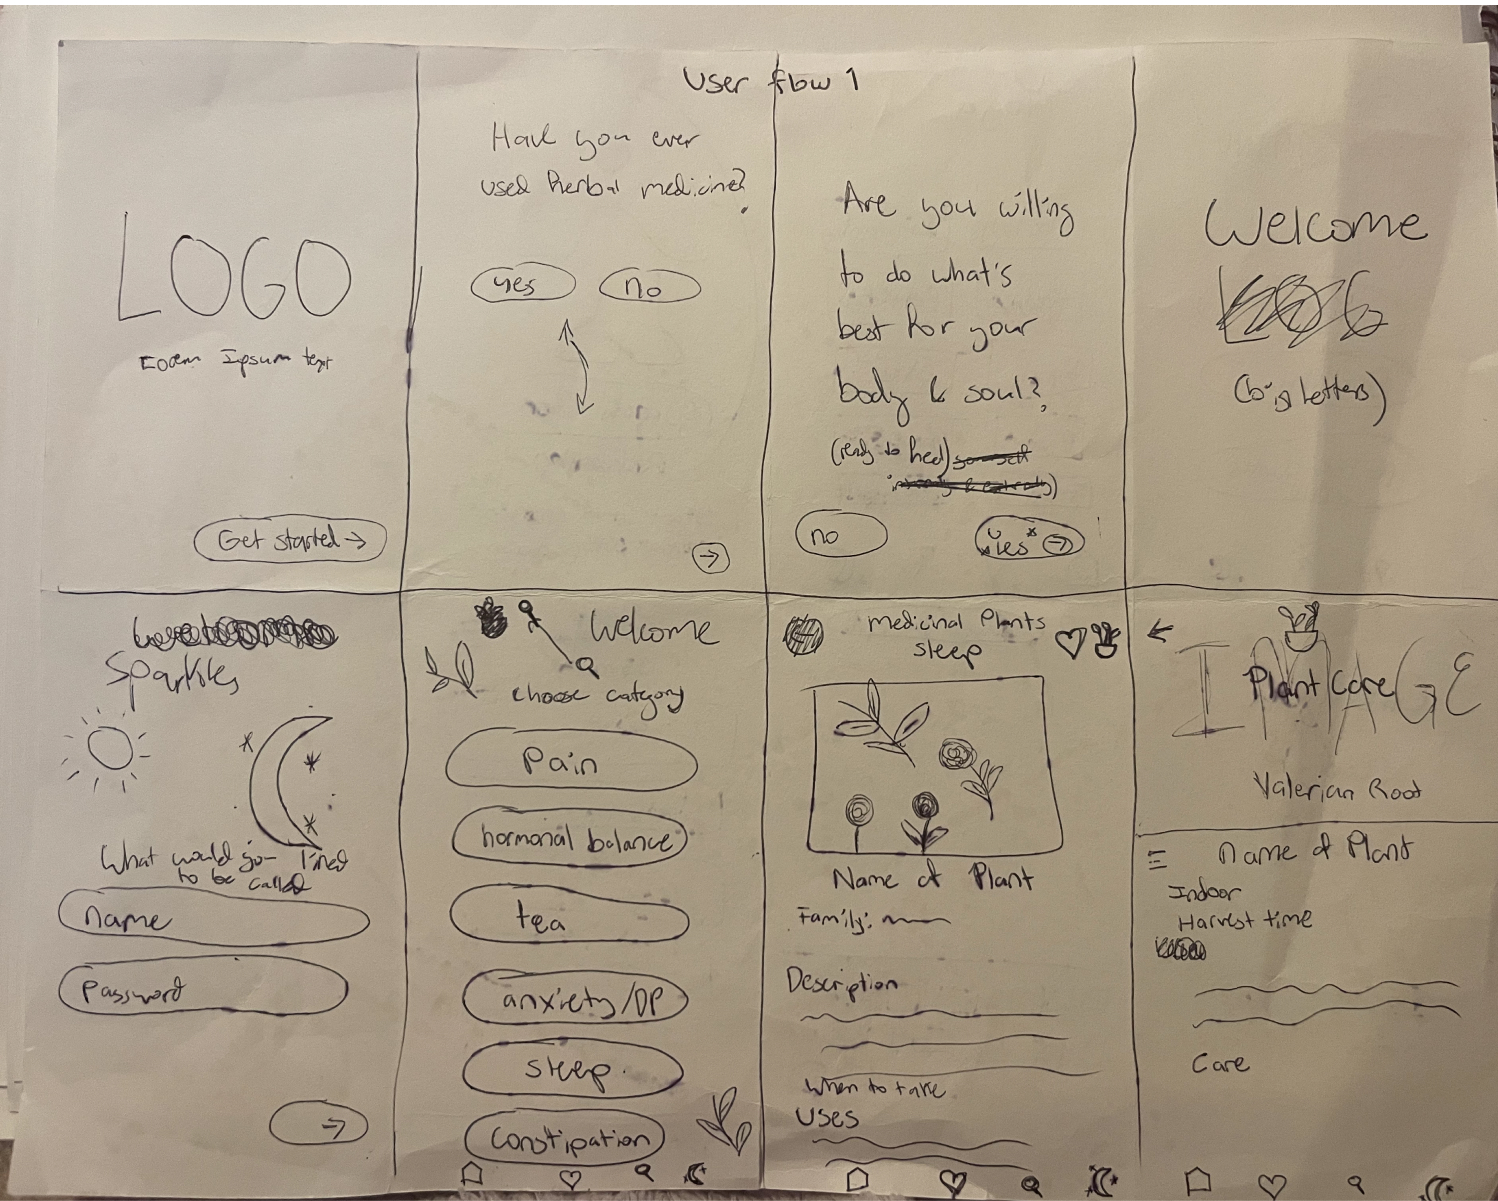 User flow 1
LOGO
Lorem Ipsum text
Get started →
Have you ever
used herbal medicine?
yes no
→
Are you willing
to do what's
best for your
body & soul?
(ready to heal)
no
yes →
Welcome
(big letters)
Sparkles
What would you
to be called
name
password
→
Welcome
choose category
Pain
hormonal balance
tea
anxiety/DP
sleep
Constipation
medicinal Plants
sleep
Name of Plant
Family:
Description
When to take
Uses
←
IMAGE
Plant Care
Valerian Root
Name of Plant
Indoor
Harvest time
Care